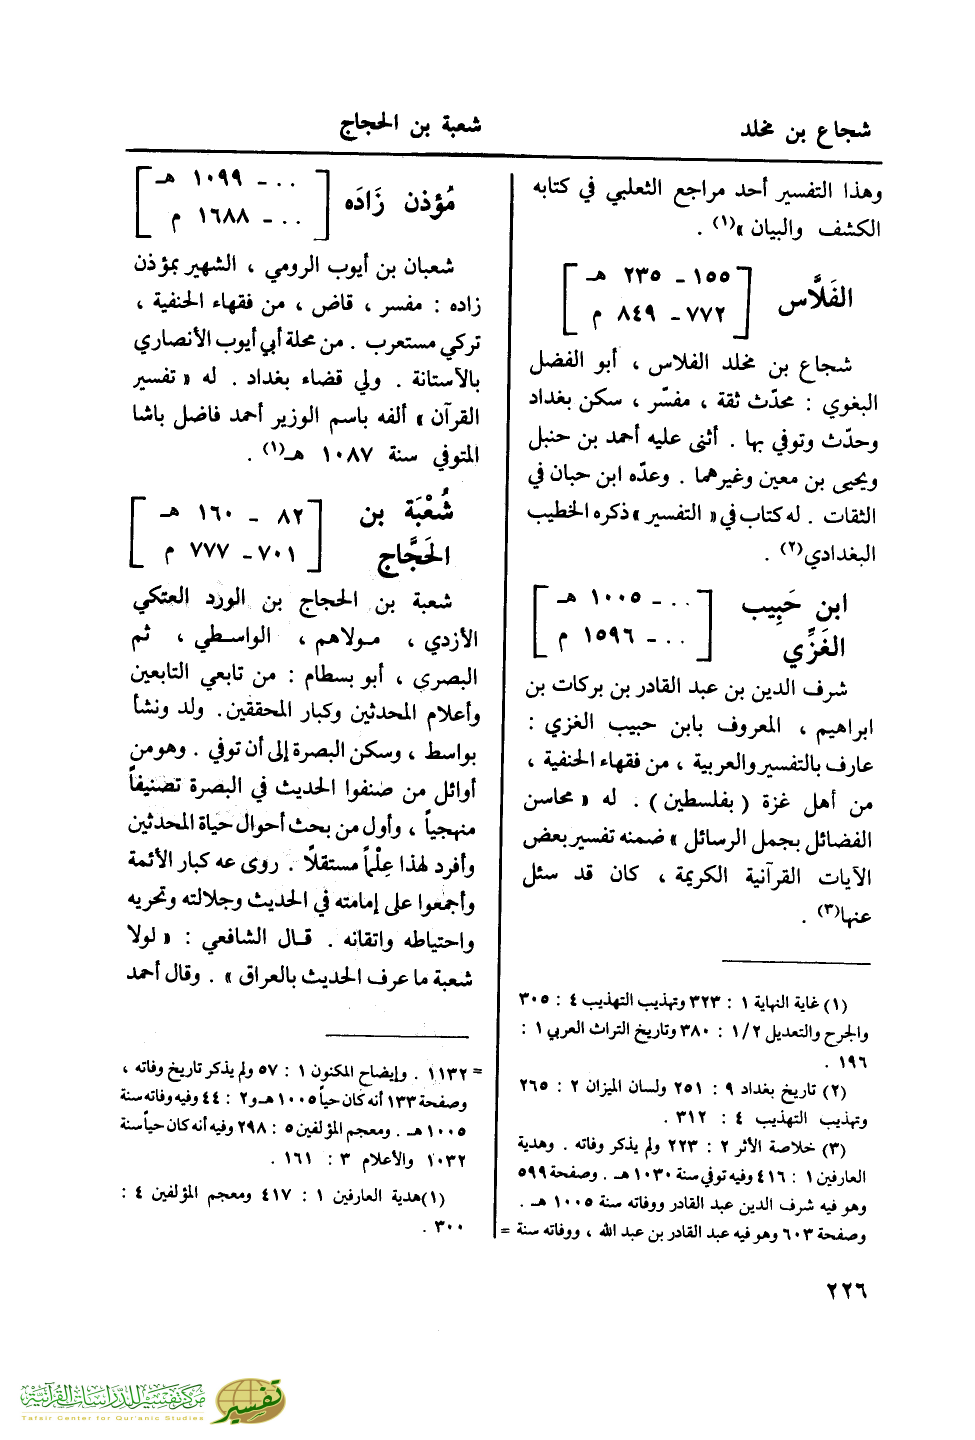 شجاع بن مخلد
شعبة بن الحجاج
وهذا التفسير أحد مراجع الثعلبي في كتابه
الكشف والبيان »(١) .
الفَلاَّس
[ ١٥٥ - ٢٣٥ هـ
٧٧٢ - ٨٤٩ م ]
شجاع بن مخلد الفلاس ، أبو الفضل
البغوي : محدّث ثقة ، مفسّر ، سكن بغداد
وحدّث وتوفي بها . أثنى عليه أحمد بن حنبل
ويحيى بن معين وغيرهما . وعدّه ابن حبان في
الثقات . له كتاب في « التفسير » ذكره الخطيب
البغدادي(٢) .
ابن حَبِيب
الغَزِّي
[ . . . - ١٠٠٥ هـ
. . . - ١٥٩٦ م ]
شرف الدين بن عبد القادر بن بركات بن
ابراهيم ، المعروف بابن حبيب الغزي :
عارف بالتفسير والعربية ، من فقهاء الحنفية ،
من أهل غزة ( بفلسطين ) . له « محاسن
الفضائل بجمل الرسائل » ضمنه تفسير بعض
الآيات القرآنية الكريمة ، كان قد سئل
عنها(٣) .
(١) غاية النهاية ١ : ٣٢٣ وتهذيب التهذيب ٤ : ٣٠٥
والجرح والتعديل ١/٢ : ٣٨٠ وتاريخ التراث العربي ١ :
١٩٦ .
(٢) تاريخ بغداد ٩ : ٢٥١ ولسان الميزان ٢ : ٢٦٥
وتهذيب التهذيب ٤ : ٣١٢ .
(٣) خلاصة الأثر ٢ : ٢٢٣ ولم يذكر وفاته . وهدية
العارفين ١ : ٤١٦ وفيه توفي سنة ١٠٣٠ هـ . وصفحة ٥٩٩
وهو فيه شرف الدين عبد القادر ووفاته سنة ١٠٠٥ هـ .
وصفحة ٦٠٣ وهو فيه عبد القادر بن عبد الله ، ووفاته سنة =
مُؤذن زَادَه
[ . . . - ١٠٩٩ هـ
. . . - ١٦٨٨ م ]
شعبان بن أيوب الرومي ، الشهير بمؤذن
زاده : مفسر ، قاض ، من فقهاء الحنفية ،
تركي مستعرب . من محلة أبي أيوب الأنصاري
بالآستانة . ولي قضاء بغداد . له « تفسير
القرآن » ألفه باسم الوزير أحمد فاضل باشا
المتوفي سنة ١٠٨٧ هـ(١) .
شُعْبَة بن
الحَجَّاج
[ ٨٢ - ١٦٠ هـ
٧٠١ - ٧٧٧ م ]
شعبة بن الحجاج بن الورد العتكي
الأزدي ، مولاهم ، الواسطي ، ثم
البصري ، أبو بسطام : من تابعي التابعين
وأعلام المحدثين وكبار المحققين . ولد ونشأ
بواسط ، وسكن البصرة إلى أن توفي . وهو من
أوائل من صنفوا الحديث في البصرة تصنيفاً
منهجياً ، وأول من بحث أحوال حياة المحدثين
وأفرد لهذا عِلْماً مستقلاً . روى عه كبار الأئمة
وأجمعوا على إمامته في الحديث وجلالته وتحريه
واحتياطه واتقانه . قال الشافعي : « لولا
شعبة ما عرف الحديث بالعراق » . وقال أحمد
= ١١٣٢ . وإيضاح المكنون ١ : ٥٧ ولم يذكر تاريخ وفاته ،
وصفحة ١٣٣ أنه كان حياً ١٠٠٥ هـ و٢ : ٤٤ وفيه وفاته سنة
١٠٠٥ هـ . ومعجم المؤلفين ٥ : ٢٩٨ وفيه أنه كان حياً سنة
١٠٣٢ والأعلام ٣ : ١٦١ .
(١) هدية العارفين ١ : ٤١٧ ومعجم المؤلفين ٤ :
٣٠٠ .
٢٢٦
مركز تفسير للدراسات القرآنية
Tafsir Center for Qur'anic Studies
تفسير